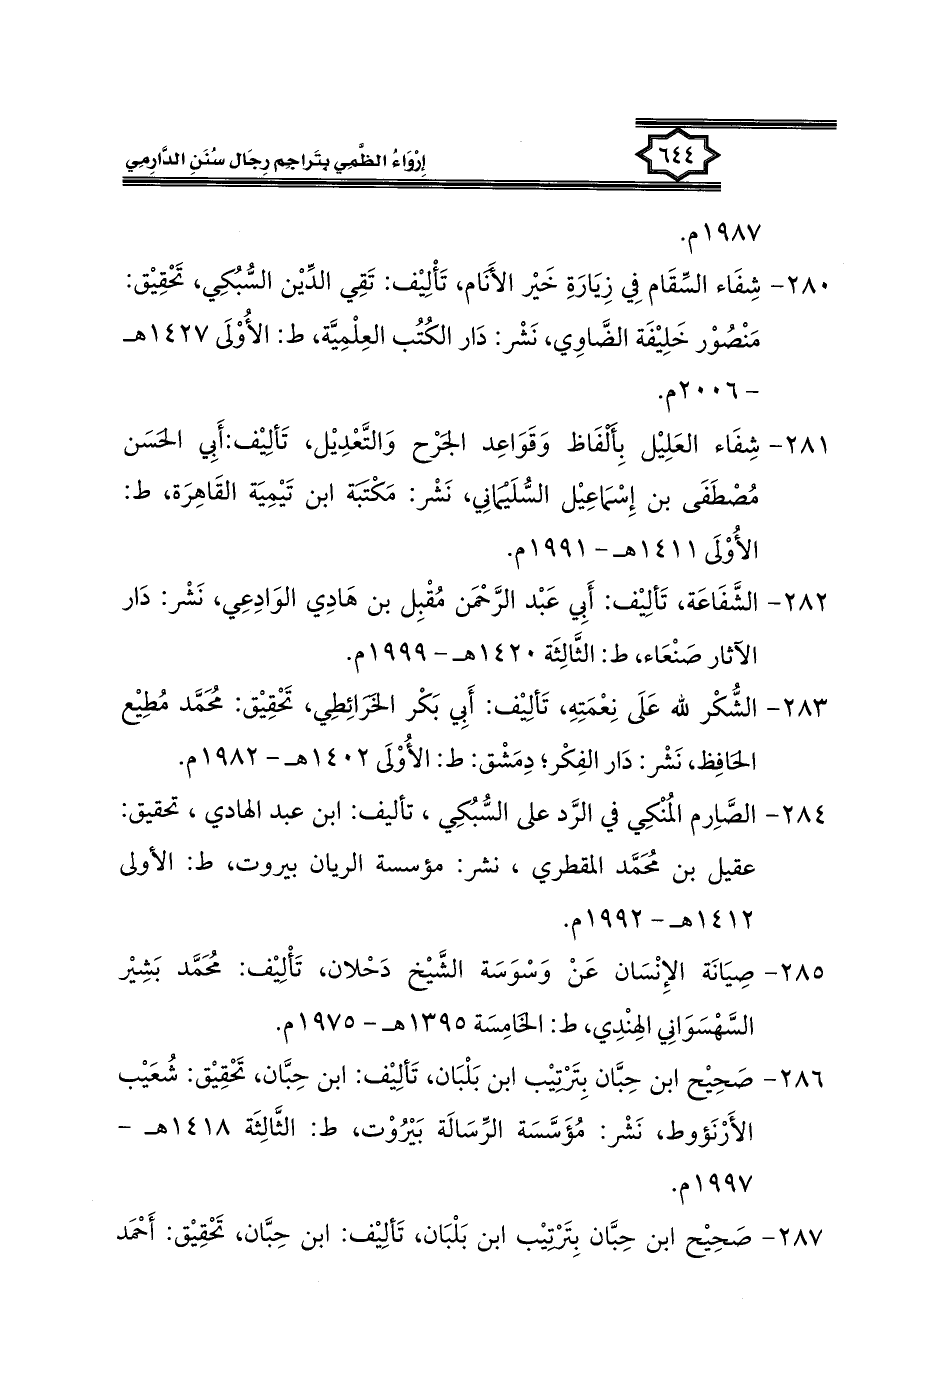 ٦٤٤
إِرْوَاءُ الظَّمِي بتَراجم رجَال سُنَنِ الدَّارِمِي
١٩٨٧م.
٢٨٠- شِفَاء السِّقَام فِي زِيَارَةِ خَيْر الأَنَام، تَأْلِيْف: تَقِي الدِّيْن السُّبْكِي، تَحْقِيْق:
مَنْصُوْر خَلِيْفَة الضَّاوِي، نَشْر: دَار الكُتُب العِلْمِيَّة، ط: الأُوْلَى ١٤٢٧هـ
- ٢٠٠٦م.
٢٨١- شِفَاء العَلِيْل بِأَلْفَاظ وَقَوَاعِد الجَرْح وَالتَّعْدِيْل، تَأْلِيْف:أَبِي الحَسَن
مُصْطَفَى بن إِسْمَاعِيْل السُّلَيْمَانِي، نَشْر: مَكْتَبَة ابن تَيْمِيَة القَاهِرَة، ط:
الأُوْلَى ١٤١١هـ - ١٩٩١م.
٢٨٢- الشَّفَاعَة، تَأْلِيْف: أَبِي عَبْد الرَّحْمَن مُقْبِل بن هَادِي الوَادِعِي، نَشْر: دَار
الآثار صَنْعَاء، ط: الثَّالِثَة ١٤٢٠هـ - ١٩٩٩م.
٢٨٣- الشُّكْر لله عَلَى نِعْمَتِهِ، تَأْلِيْف: أَبِي بَكْر الخَرَائِطِي، تَحْقِيْق: مُحَمَّد مُطِيْع
الحَافِظ، نَشْر: دَار الفِكْر؛ دِمَشْق: ط: الأُوْلَى ١٤٠٢هـ - ١٩٨٢م.
٢٨٤- الصَّارِم المُنْكِي في الرَّد على السُّبْكِي ، تأليف: ابن عبد الهادي ، تحقيق:
عقيل بن مُحَمَّد المقطري ، نشر: مؤسسة الريان بيروت، ط: الأولى
١٤١٢هـ - ١٩٩٢م.
٢٨٥- صِيَانَة الإِنْسَان عَنْ وَسْوَسَة الشَّيْخ دَحْلان، تَأْلِيْف: مُحَمَّد بَشِيْر
السَّهْسَوَانِي الهِنْدِي، ط: الخَامِسَة ١٣٩٥هـ - ١٩٧٥م.
٢٨٦- صَحِيْح ابن حِبَّان بِتَرْتِيْب ابن بَلْبَان، تَأْلِيْف: ابن حِبَّان، تَحْقِيْق: شُعَيْب
الأَرْنَؤوط، نَشْر: مُؤَسَّسَة الرِّسَالَة بَيْرُوْت، ط: الثَّالِثَة ١٤١٨هـ -
١٩٩٧م.
٢٨٧- صَحِيْح ابن حِبَّان بِتَرْتِيْب ابن بَلْبَان، تَأْلِيْف: ابن حِبَّان، تَحْقِيْق: أَحْمَد